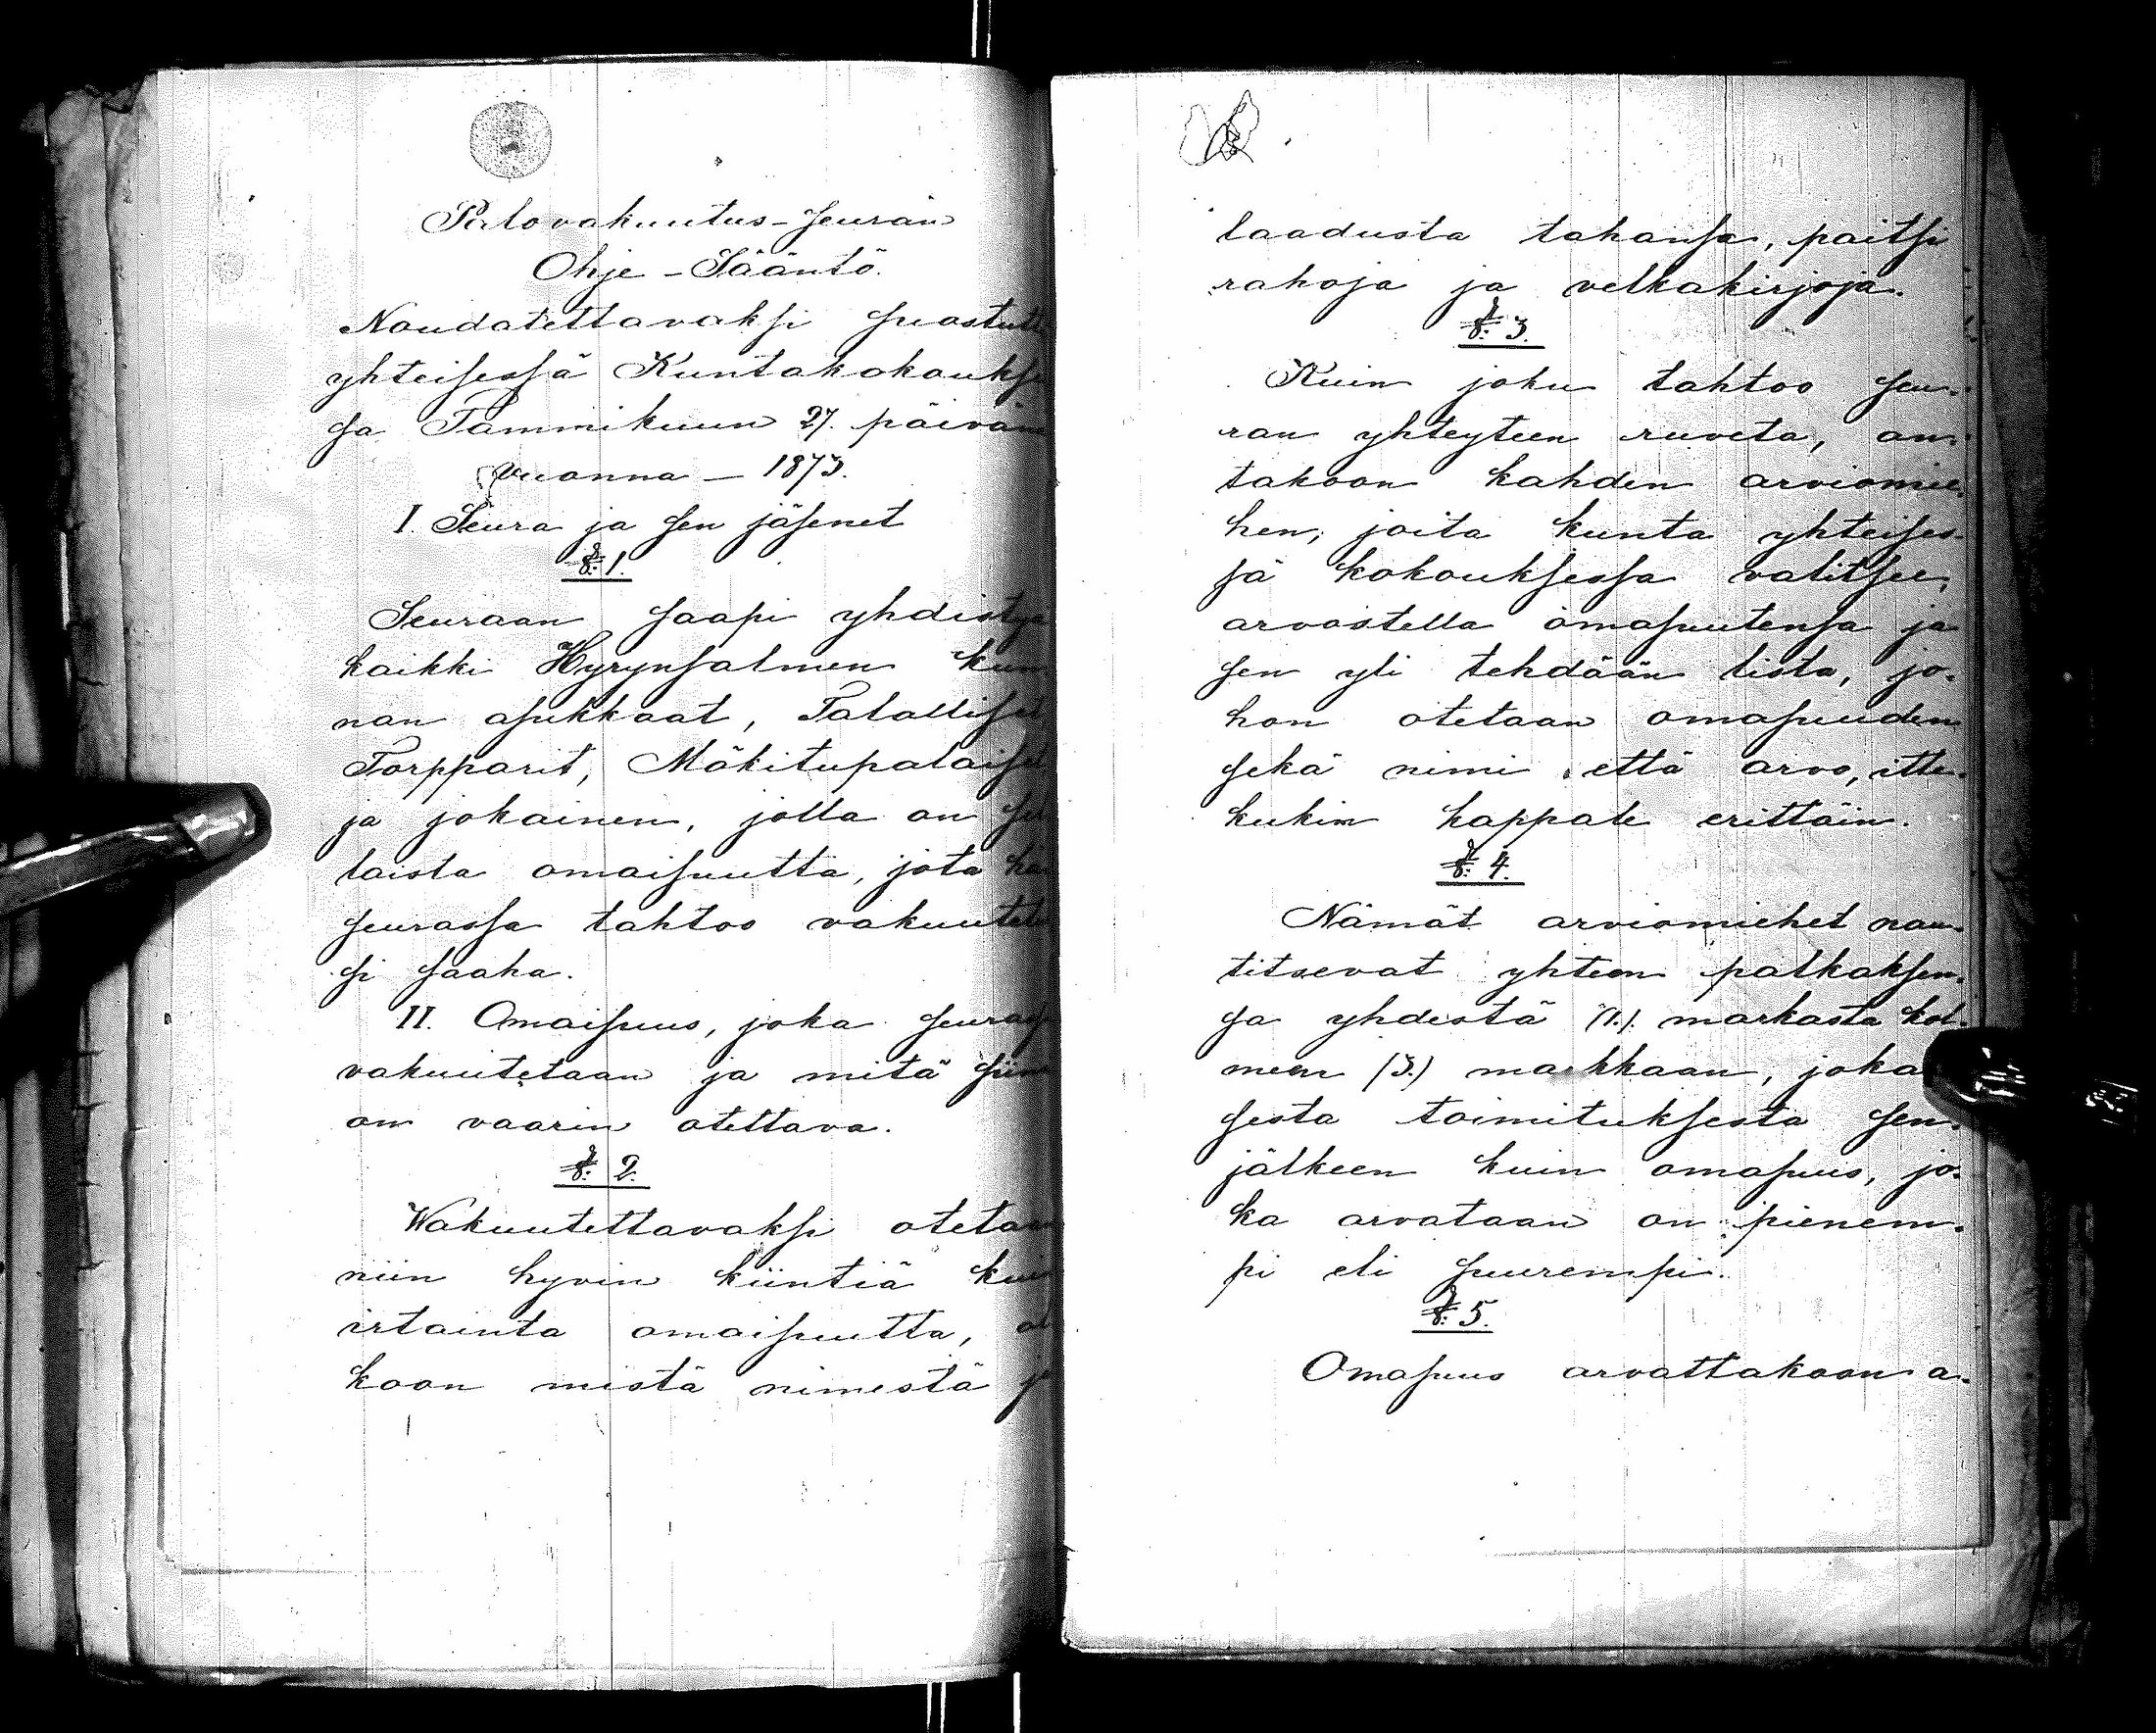 Palovakuutus-seuran
Ohje-Sääntö.
Noudatettavaksi suostuttu
yhteisessä Kuntakokoukse
sa Tammikuun 27. päivänä
vuonna – 1873.
I. Seura ja sen jäsenet
§. 1.
Seuraan saapi yhdistyä
kaikki Hyrynsalmen kun
nan asukkaat, Talolliset
Torpparit, Mäkitupalaiset
ja jokainen, jolla on sel
laista omaisuutta, jota hän
seurassa tahtoo vakuutetu
si saaha.
II. Omaisuus, joka seurassa
vakuutetaan ja mitä siinä
on vaarin otettava.
§. 2.
Wakuutettavaksi otetaan
niin hyvin kiintiä kuin
irtainta omaisuutta, ol
koon mistä nimestä ja
laadusta tahansa, paitsi
rahoja ja velkakirjoja.
§. 3.
Kuin joku tahtoo seu-
ran yhteyteen ruveta, an-
takoon kahden arviomie-
hen, joita kunta yhteises-
sä kokouksessa valitsee,
arvostella omasuutensa ja
sen yli tehdään lista, jo-
hon otetaan omasuuden
sekä nimi että arvo, itte-
kukin kappale erittäin.
§. 4.
Nämät arviomiehet nau-
titsevat yhteen palkaksen-
sa yhdestä (1.) markasta kol-
meen (3.) markkaan, joka
sesta toimituksesta sen-
jälkeen kuin omasuus, jo-
ka arvataan on pienem-
pi eli suurempi.
§. 5.
Omasuus arvattakoon a-